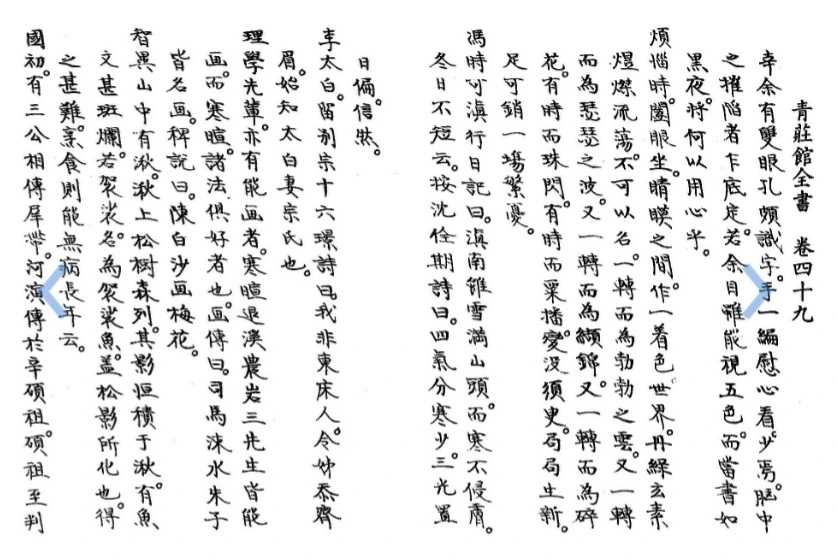 靑莊館全書 卷四十九
幸余有雙眼孔頗識字手一編慰心看少焉胸中
之摧陷者乍底定若余目雖能視五色而當書如
黑夜將何以用心乎
煩惱時闔眼坐睛瞙之間作一着色世界丹綠玄素
熀㸅流蕩不可以名一轉而為勃勃之雲又一轉
而為瑟瑟之波又一轉而為纈錦又一轉而為碎
花有時而珠閃有時而粟播變沒須臾局局生新
足可銷一塲繁憂
馮時可滇行日記曰滇南雖雪滿山頭而寒不侵膚
冬日不短云按沈佺期詩曰四氣分寒少三光置
日偏信然
李太白留別宗十六璟詩曰我非東床人令姊忝齊
眉始知太白妻宗氏也
理學先輩亦有能画者寒暄退溪農岩三先生皆能
画而寒暄諸法俱好者也画傳曰司馬涑水朱子
皆名画稗說曰陳白沙画梅花
智異山中有湫湫上松樹森列其影恒積于湫有魚
文甚斑爛若袈裟名為袈裟魚盖松影所化也得
之甚難烹食則能無病長年云
國初有三公相傳犀帶河演傳於辛碩祖碩祖至判